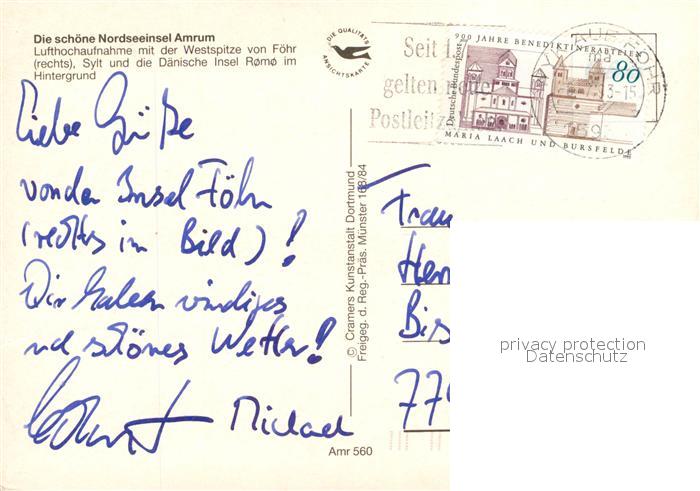 Die schöne Nordseeinsel Amrum
Lufthochaufnahme mit der Westspitze von Föhr
(rechts), Sylt und die Dänische Insel Rømø im
Hintergrund
DIE QUALITÄTS
ANSICHTSKARTE
Liebe Grüße
von der Insel Föhr
(rechts im Bild)!
Wir haben windiges
und schönes Wetter!
Michael
© Cramers Kunstanstalt Dortmund
Freigeg. d. Reg.-Präs. Münster 168/84
Amr 560
Seit 1.
gelten neue
Postleitz
900 JAHRE BENEDIKTINERABTEIEN
Deutsche Bundespost
80
MARIA LAACH UND BURSFELDE
FÖHR
ma
3-15
Frau
Her
Bis
77
privacy protection
Datenschutz